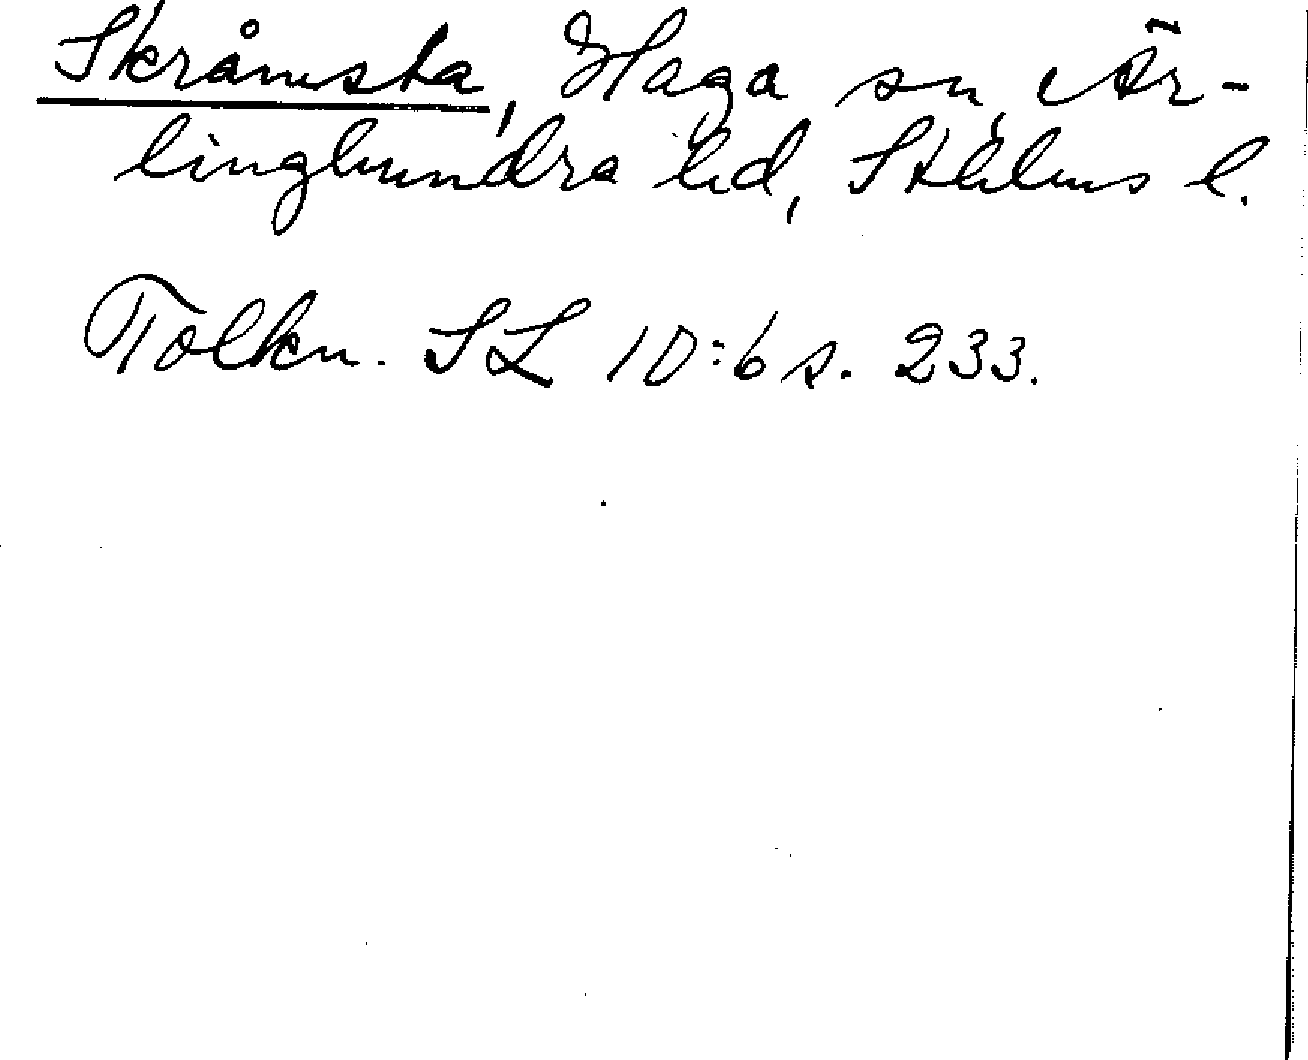 Skråmsta, Haga sn, Är-
linghundra hd, Sthlms l.
Tolkn. SL 10:6 s. 233.